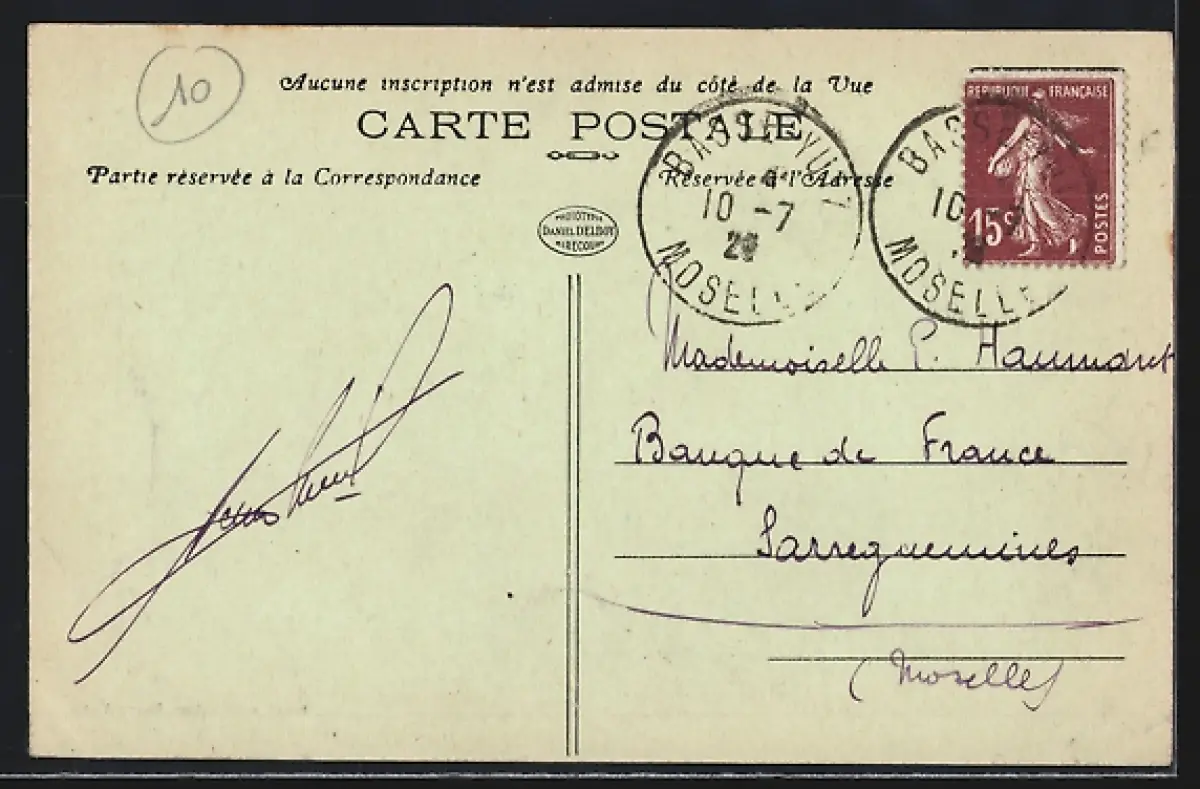 10
Aucune inscription n'est admise du côté de la Vue
CARTE POSTALE
Partie réservée à la Correspondance
Réservée à l'Adresse
DANIEL DELBOY
MIRECOURT
BASSE-YUTZ
10 -7
MOSELLE
BASSE
10
MOSELLE
REPUBLIQUE FRANÇAISE
15c
POSTES
Mademoiselle P. Haumont
Banque de France
Sarreguemines
(Moselle)